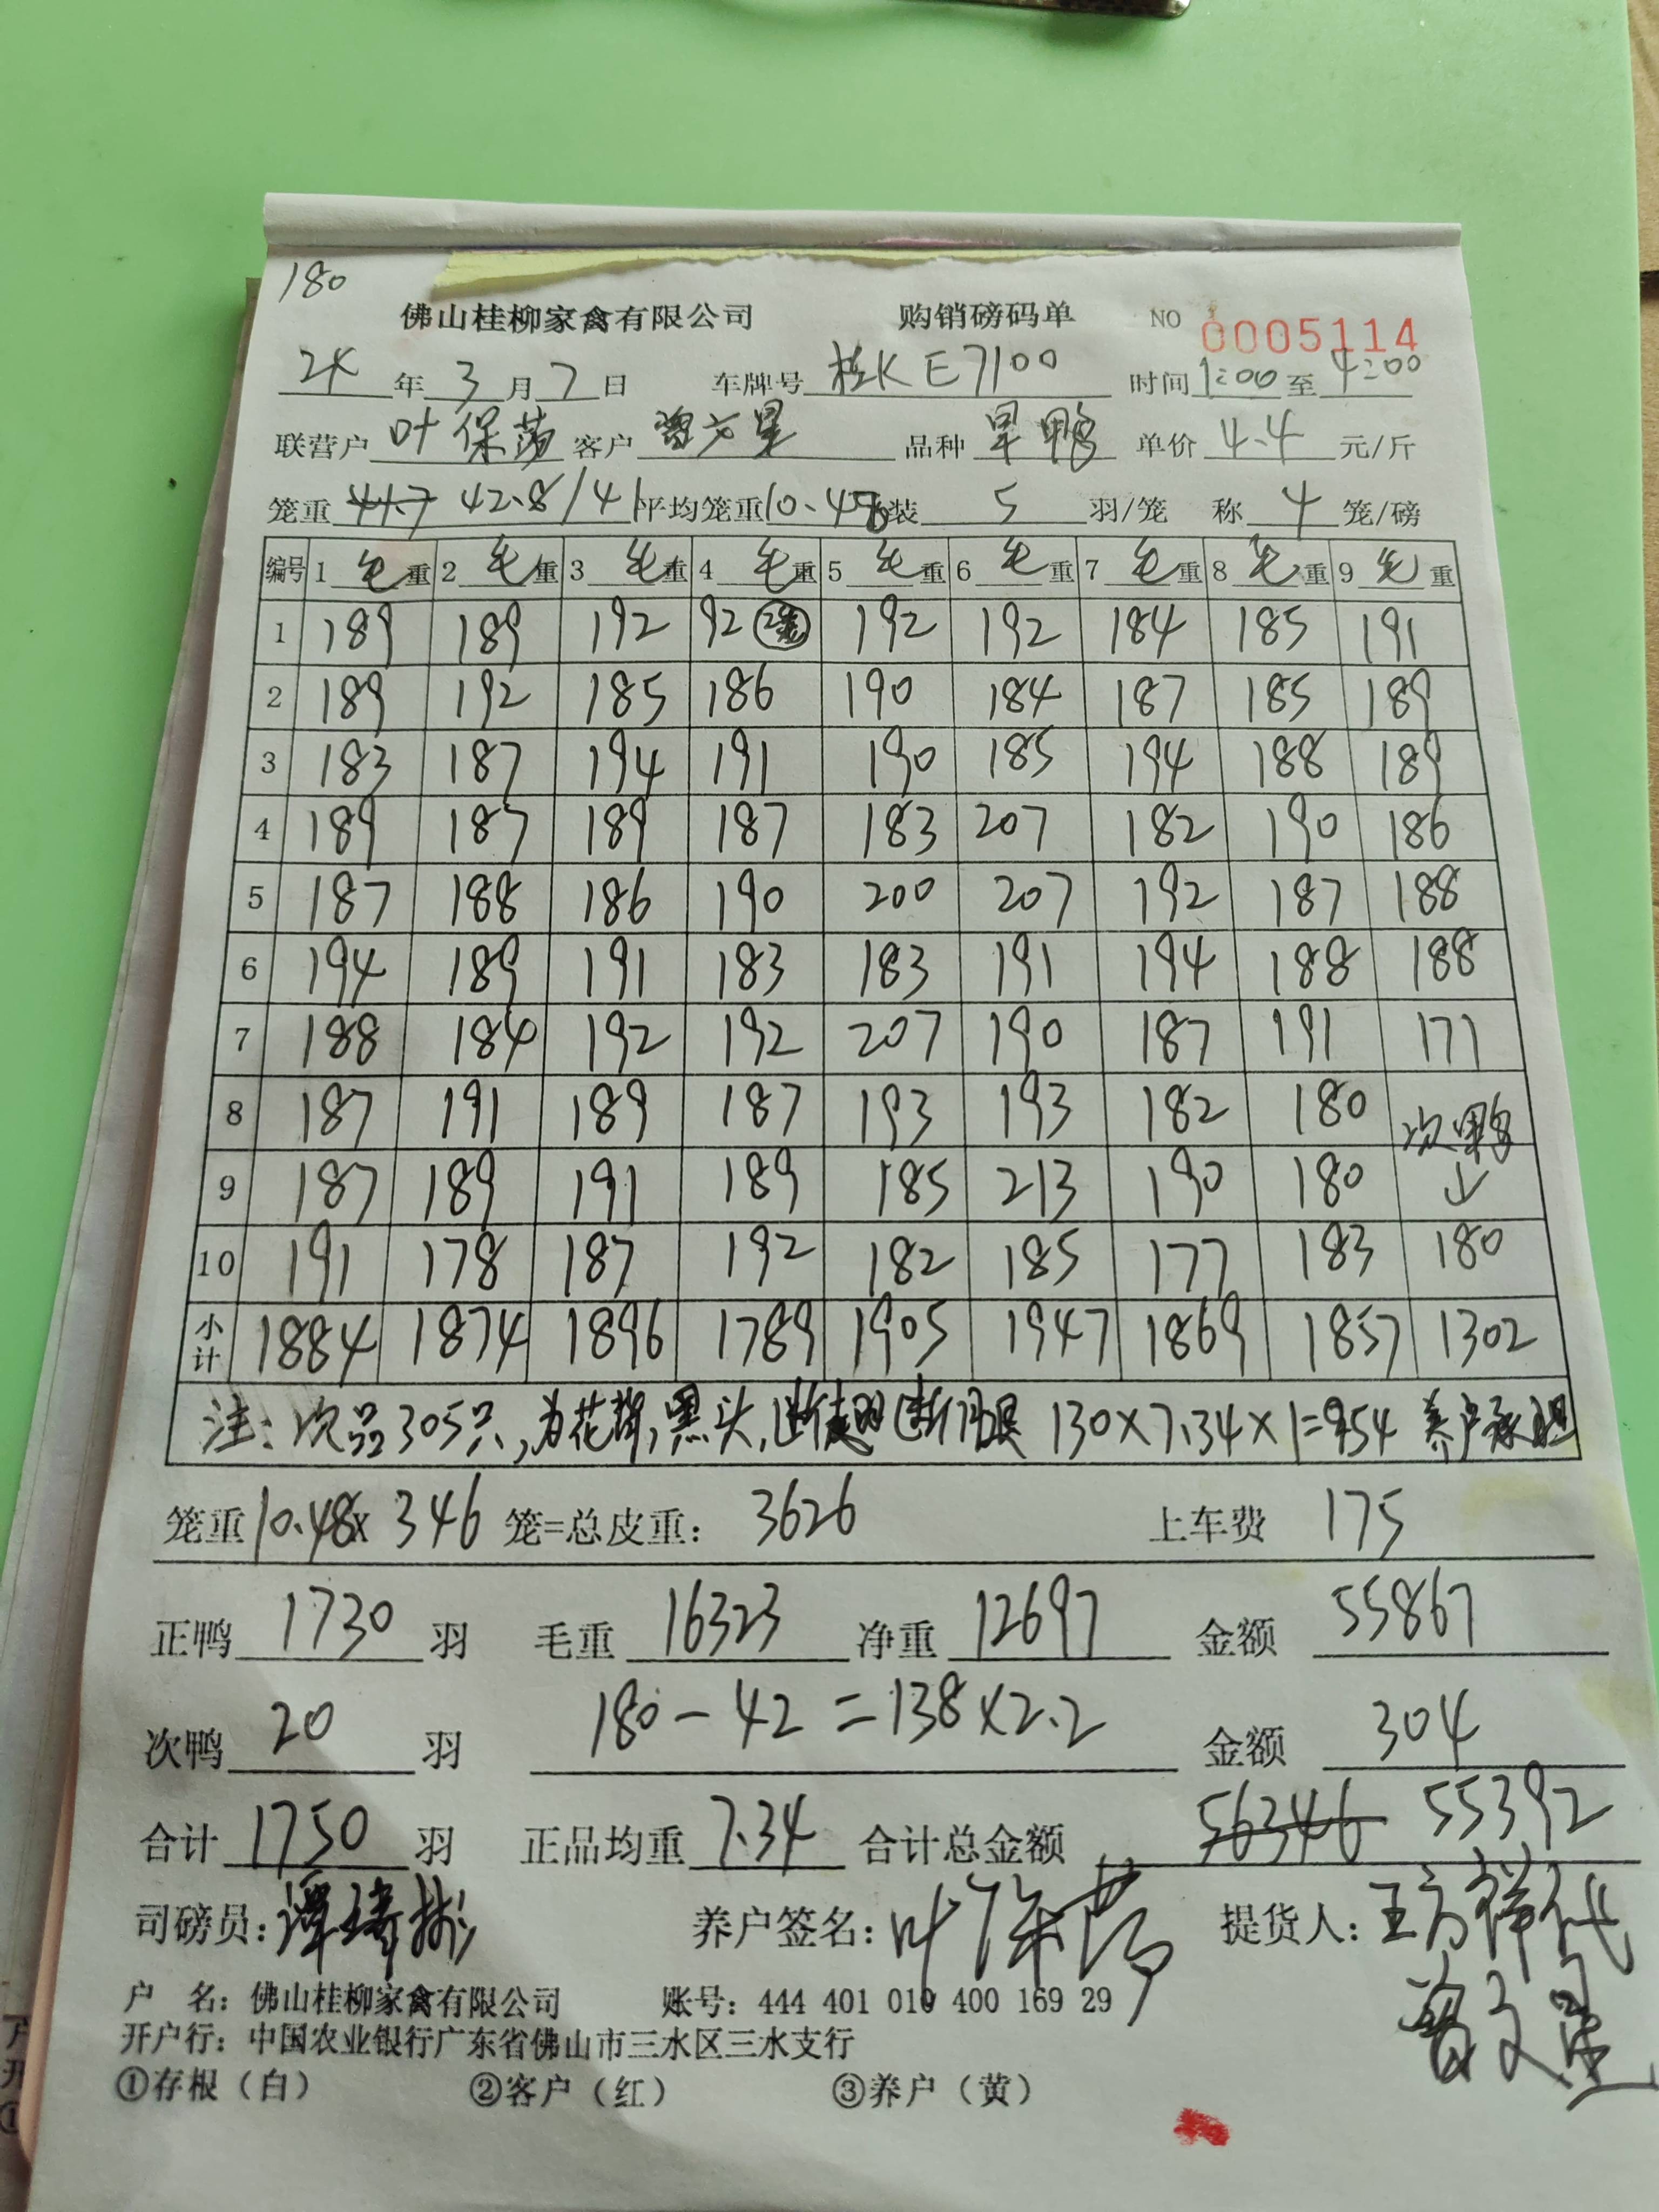 180
佛山桂柳家禽有限公司 购销磅码单 NO 0005114
24 年 3 月 7 日 车牌号 桂K E7100 时间 1:00 至 4:00
联营户 叶保荡 客户 曾文星 品种 旱鸭 单价 4.4 元/斤
笼重 41.7 42.8/41 平均笼重 10.48 装 5 羽/笼 称 4 笼/磅
编号 1 毛重 2 毛重 3 毛重 4 毛重 5 毛重 6 毛重 7 毛重 8 毛重 9 毛重
1 189 189 192 92 2笼 192 192 184 185 191
2 189 192 185 186 190 184 187 185 189
3 183 187 194 191 190 185 194 188 189
4 189 187 189 187 183 207 182 190 186
5 187 188 186 190 200 207 192 187 188
6 194 189 191 183 183 191 194 188 188
7 188 184 192 192 207 190 187 191 171
8 187 191 189 187 193 193 182 180 次鸭
9 187 189 191 189 185 213 190 180 ↓
10 191 178 187 192 182 185 177 183 180
小计 1884 1874 1896 1789 1905 1947 1869 1857 1302
注: 次品305只, 为花背, 黑头, 断翅 断腿 130×7.34×1=954 养户承担
笼重 10.48× 346 笼=总皮重: 3626 上车费 175
正鸭 1730 羽 毛重 16323 净重 12697 金额 55867
次鸭 20 羽 180-42=138×2.2 金额 304
合计 1750 羽 正品均重 7.34 合计总金额 56346 55392
司磅员: 养户签名: 叶保荡 提货人: 王方祥代
曾文星
户 名: 佛山桂柳家禽有限公司 账号: 444 401 010 400 169 29
开户行: 中国农业银行广东省佛山市三水区三水支行
①存根（白） ②客户（红） ③养户（黄）